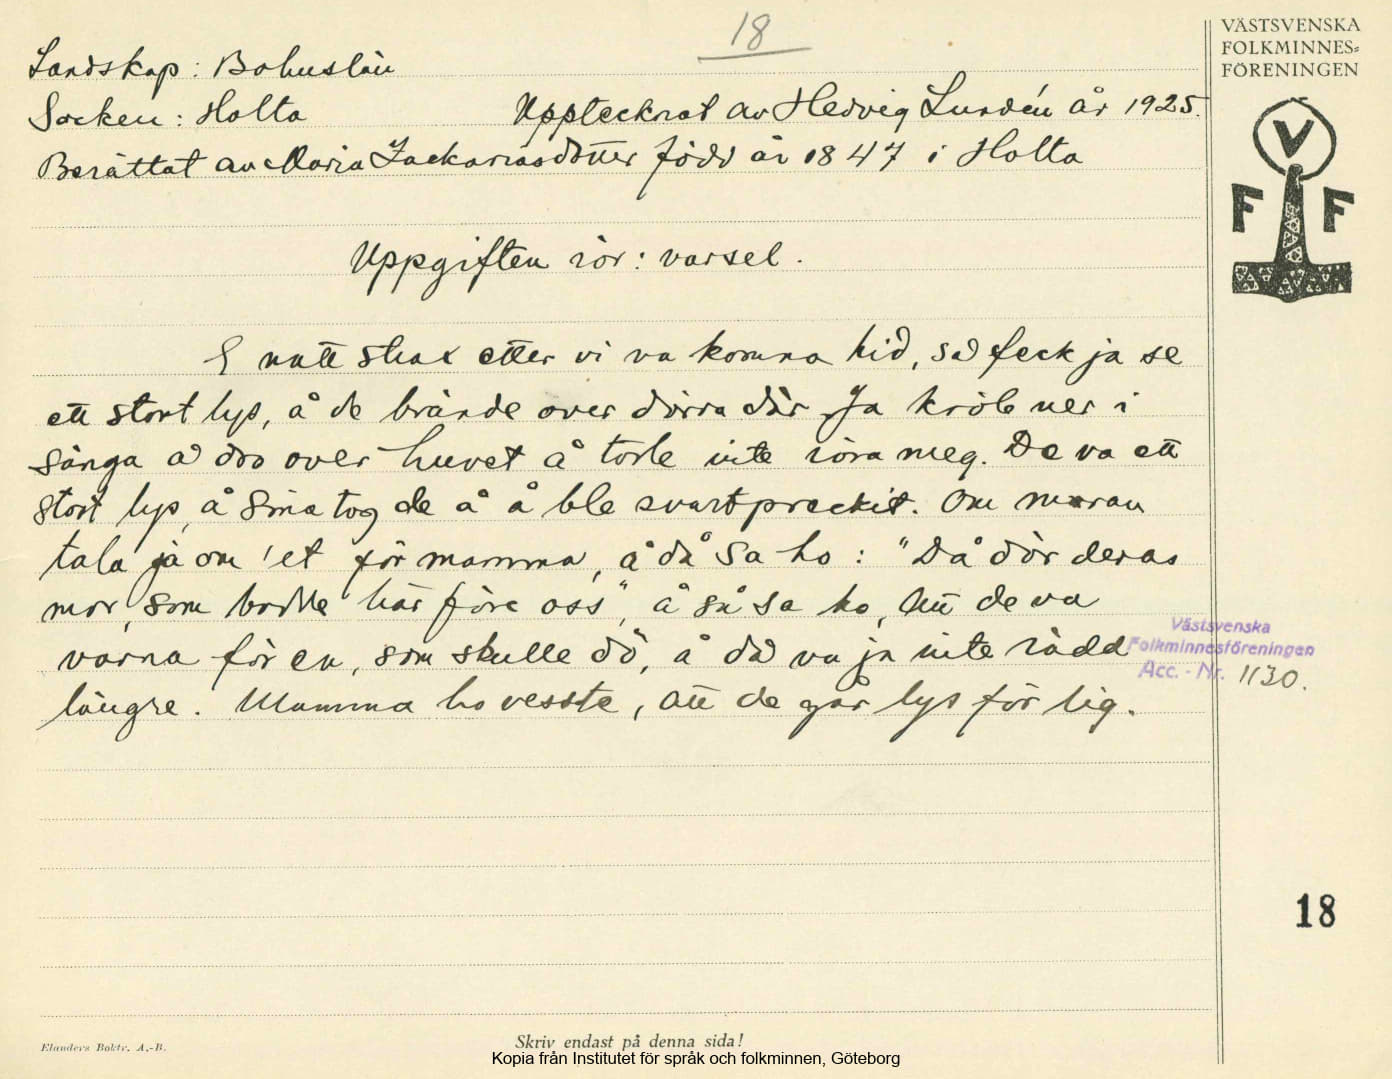 18
VÄSTSVENSKA
FOLKMINNES=
FÖRENINGEN
V
F F
Landskap: Bohuslän
Socken: Holta Upptecknat av Hedvig Lundén år 1925.
Berättat av Maria Zackariasdotter född år 1847 i Holta
Uppgiften rör: varsel.
E natt strax etter vi va komna hid, så feck ja se
ett stort lys, å de brände over dörra där Ja kröb ner i
sänga å dro over huvet å torle inte röra meg. De va ett
stort lys, å sina tog de å å ble svartpreckit. Om moran
tala ja om 'et för mamma, å då sa ho: "Då dör deras
mor, som bodde här före oss", å så sa ho, att de va
varna för en, som skulle dö, å då va ja inte rädd
längre. Mamma ho vesste, att de går lys för lig.
Västsvenska
Folkminnesföreningen
Acc. - Nr. 1130.
18
Elanders Boktr. A.-B.
Skriv endast på denna sida!
Kopia från Institutet för språk och folkminnen, Göteborg